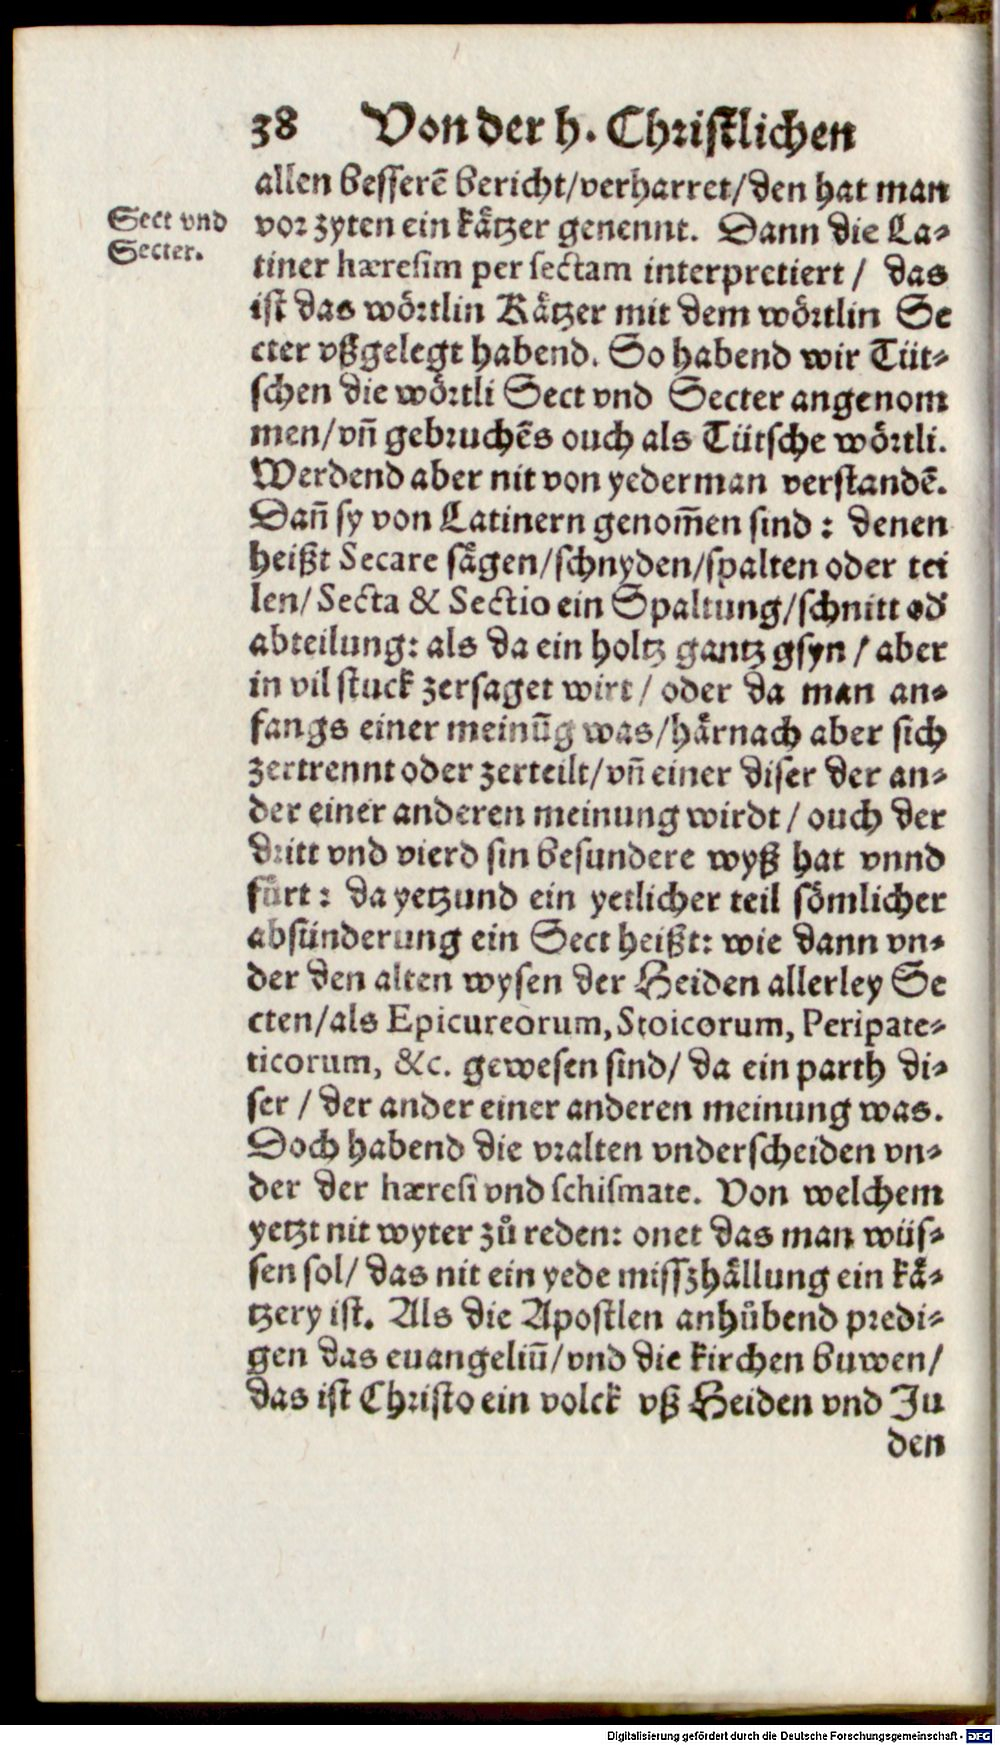 38 Von der h. Christlichen
allen besserẽ bericht/verharret/den hat man
Sect vnd
Secter.
vor zyten ein kätzer genennt. Dann die La-
tiner hæresim per sectam interpretiert / das
ist das wörtlin Kätzer mit dem wörtlin Se
cter vßgelegt habend. So habend wir Tüt-
schen die wörtli Sect vnd Secter angenom
men/vñ gebruchẽs ouch als Tütsche wörtli.
Werdend aber nit von yederman verstandẽ.
Dañ sy von Latinern genom̃en sind: denen
heißt Secare sägen/schnyden/spalten oder tei
len/Secta & Sectio ein Spaltung/schnitt od
abteilung: als da ein holtz gantz gsyn / aber
in vil stuck zersaget wirt / oder da man an-
fangs einer meinũg was/härnach aber sich
zertrennt oder zerteilt/vñ einer diser der an-
der einer anderen meinung wirdt / ouch der
dritt vnd vierd sin besundere wyß hat vnnd
fürt: da yetzund ein yetlicher teil sömlicher
absünderung ein Sect heißt: wie dann vn-
der den alten wysen der Heiden allerley Se
cten/als Epicureorum, Stoicorum, Peripate-
ticorum, &c. gewesen sind/ da ein parth di-
ser / der ander einer anderen meinung was.
Doch habend die vralten vnderscheiden vn-
der der hæresi vnd schismate. Von welchem
yetzt nit wyter zů reden: onet das man wüs-
sen sol/ das nit ein yede misszhällung ein kä-
tzery ist. Als die Apostlen anhůbend predi-
gen das euangeliũ/vnd die kirchen buwen/
das ist Christo ein volck vß Heiden vnd Ju
den
Digitalisierung gefördert durch die Deutsche Forschungsgemeinschaft - DFG